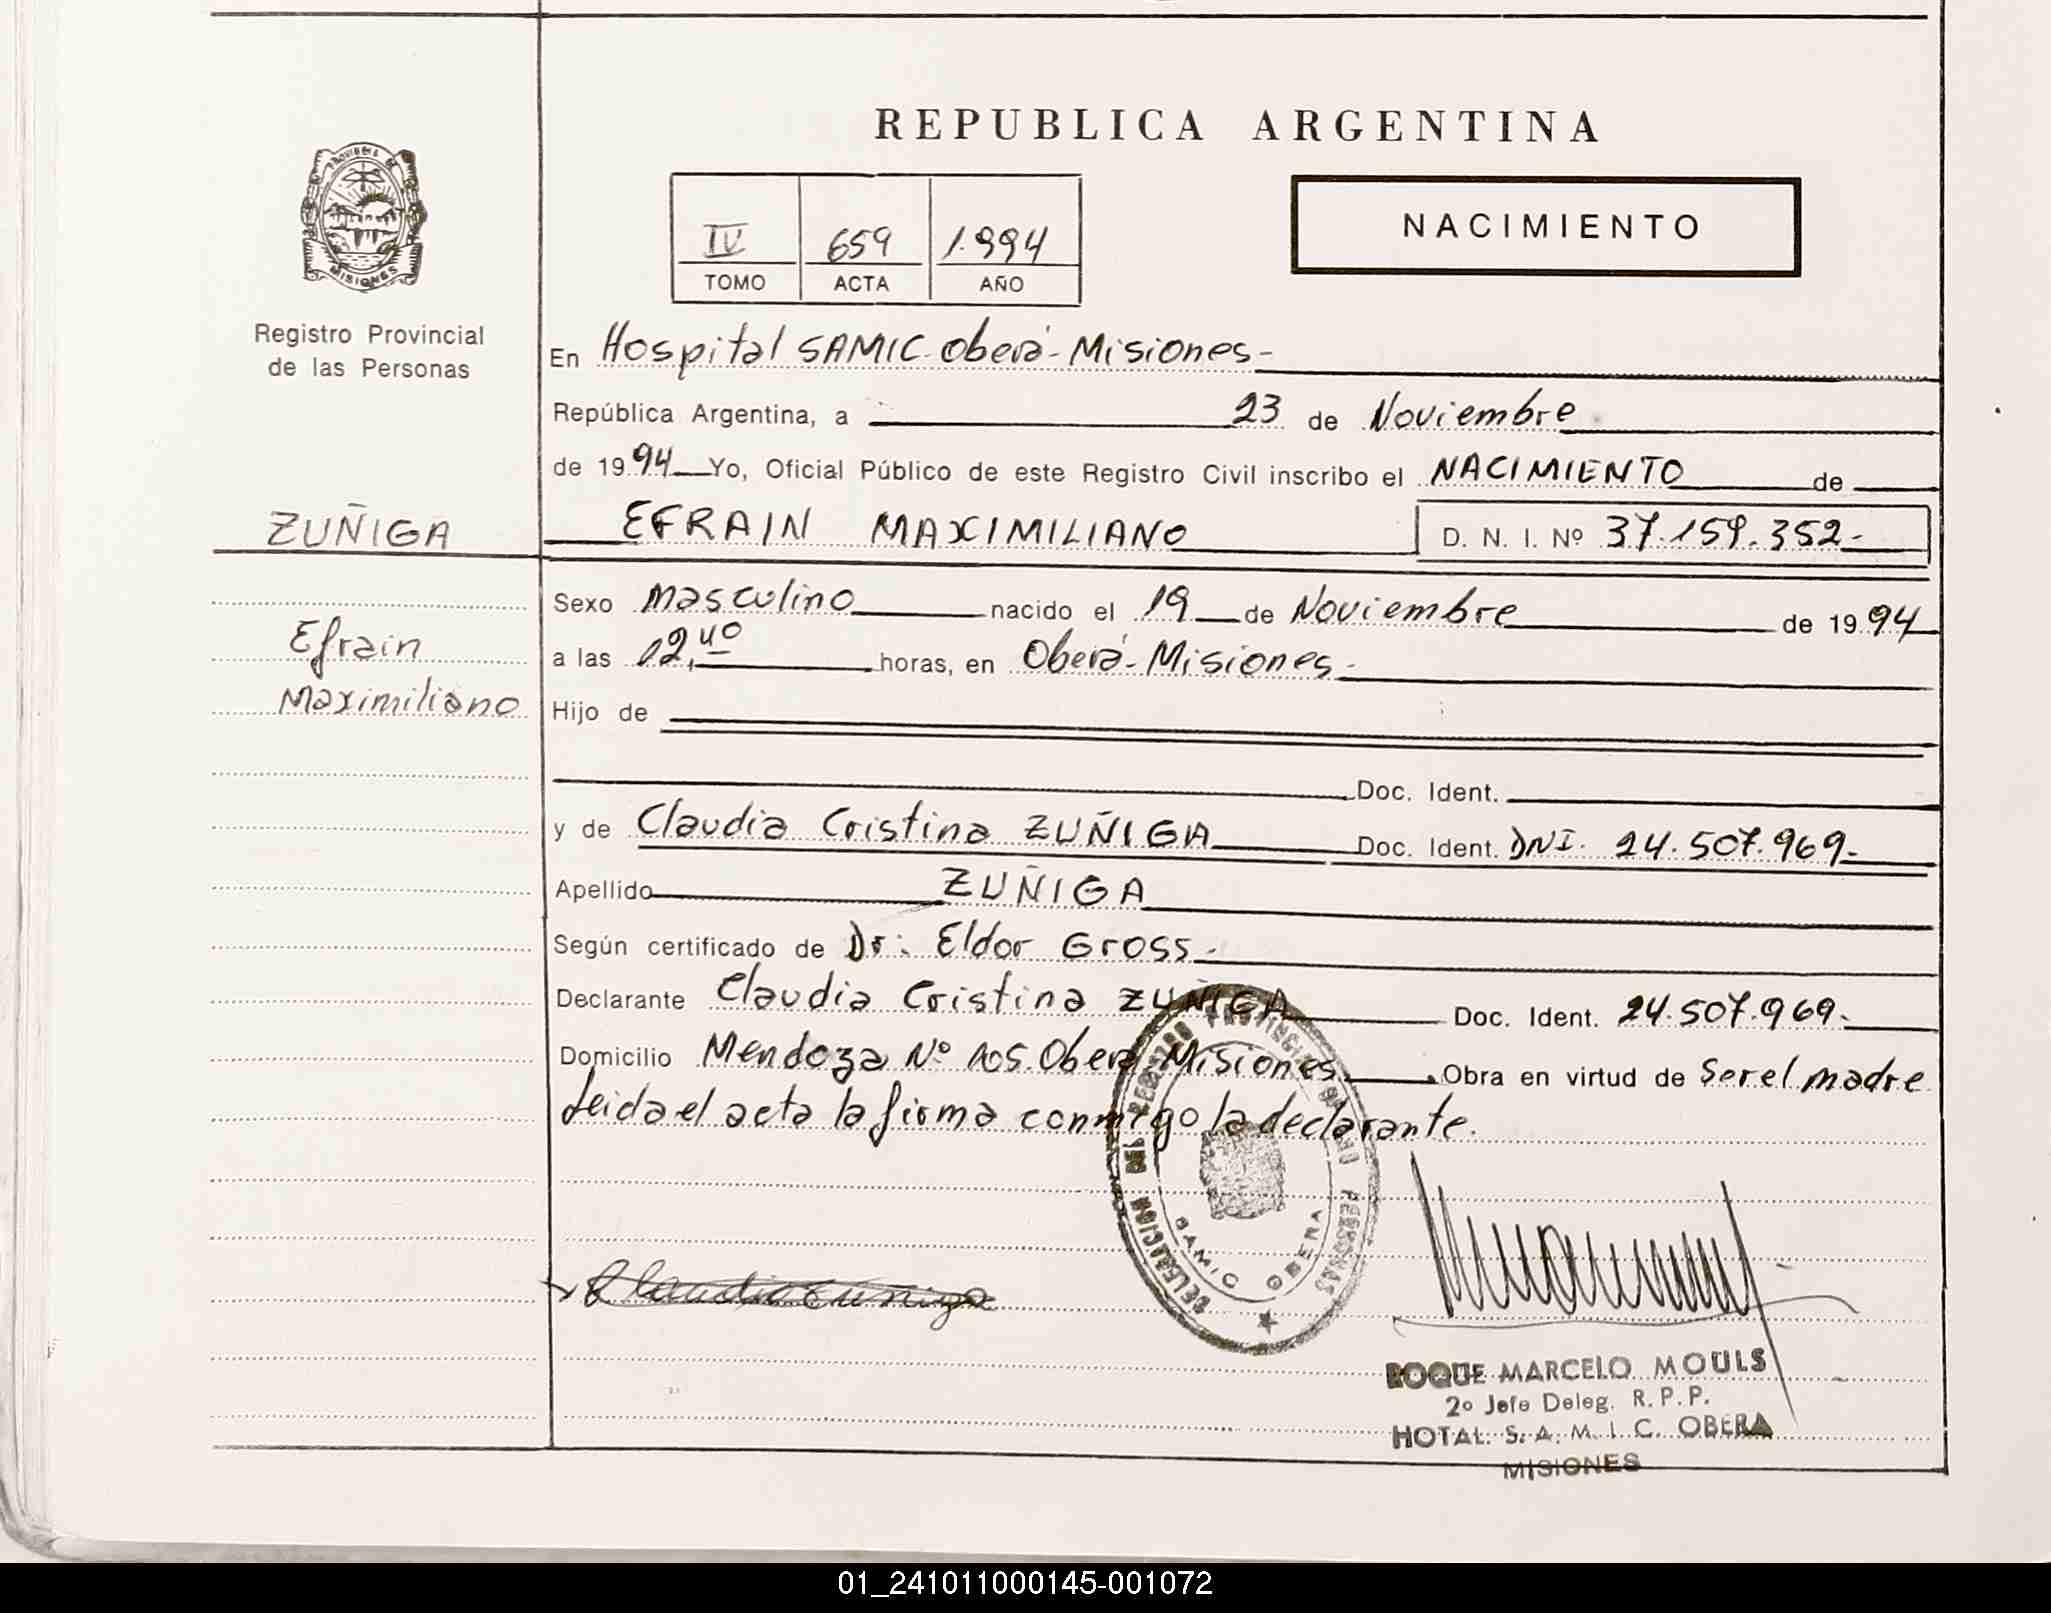 REPUBLICA ARGENTINA
PROVINCIA DE
MISIONES
IV 659 1.994
TOMO ACTA AÑO
NACIMIENTO
Registro Provincial
de las Personas
En Hospital SAMIC-Oberá-Misiones-
República Argentina, a 23 de Noviembre
de 1994 Yo, Oficial Público de este Registro Civil inscribo el NACIMIENTO de
ZUÑIGA
EFRAIN MAXIMILIANO D. N. I. Nº 37.159.352-
Efrain
Maximiliano
Sexo Masculino nacido el 19 de Noviembre de 1994
a las 12,40 horas, en Oberá-Misiones-
Hijo de
Doc. Ident.
y de Claudia Cristina ZUÑIGA Doc. Ident. DNI. 24.507.969-
Apellido ZUÑIGA
Según certificado de Dr: Eldor Gross-
Declarante Claudia Cristina ZUÑIGA Doc. Ident. 24.507.969-
Domicilio Mendoza Nº 105.Oberá Misiones Obra en virtud de Ser el madre
Leida el acta la firma conmigo la declarante.
DELEGACION DEL REGISTRO PROVINCIAL DE LAS PERSONAS
SAMIC OBERA
Claudia Zuniga
ROQUE MARCELO MOULS
2º Jefe Deleg. R. P. P.
HOTAL. S. A. M. I. C. OBERA
MISIONES
01_241011000145-001072